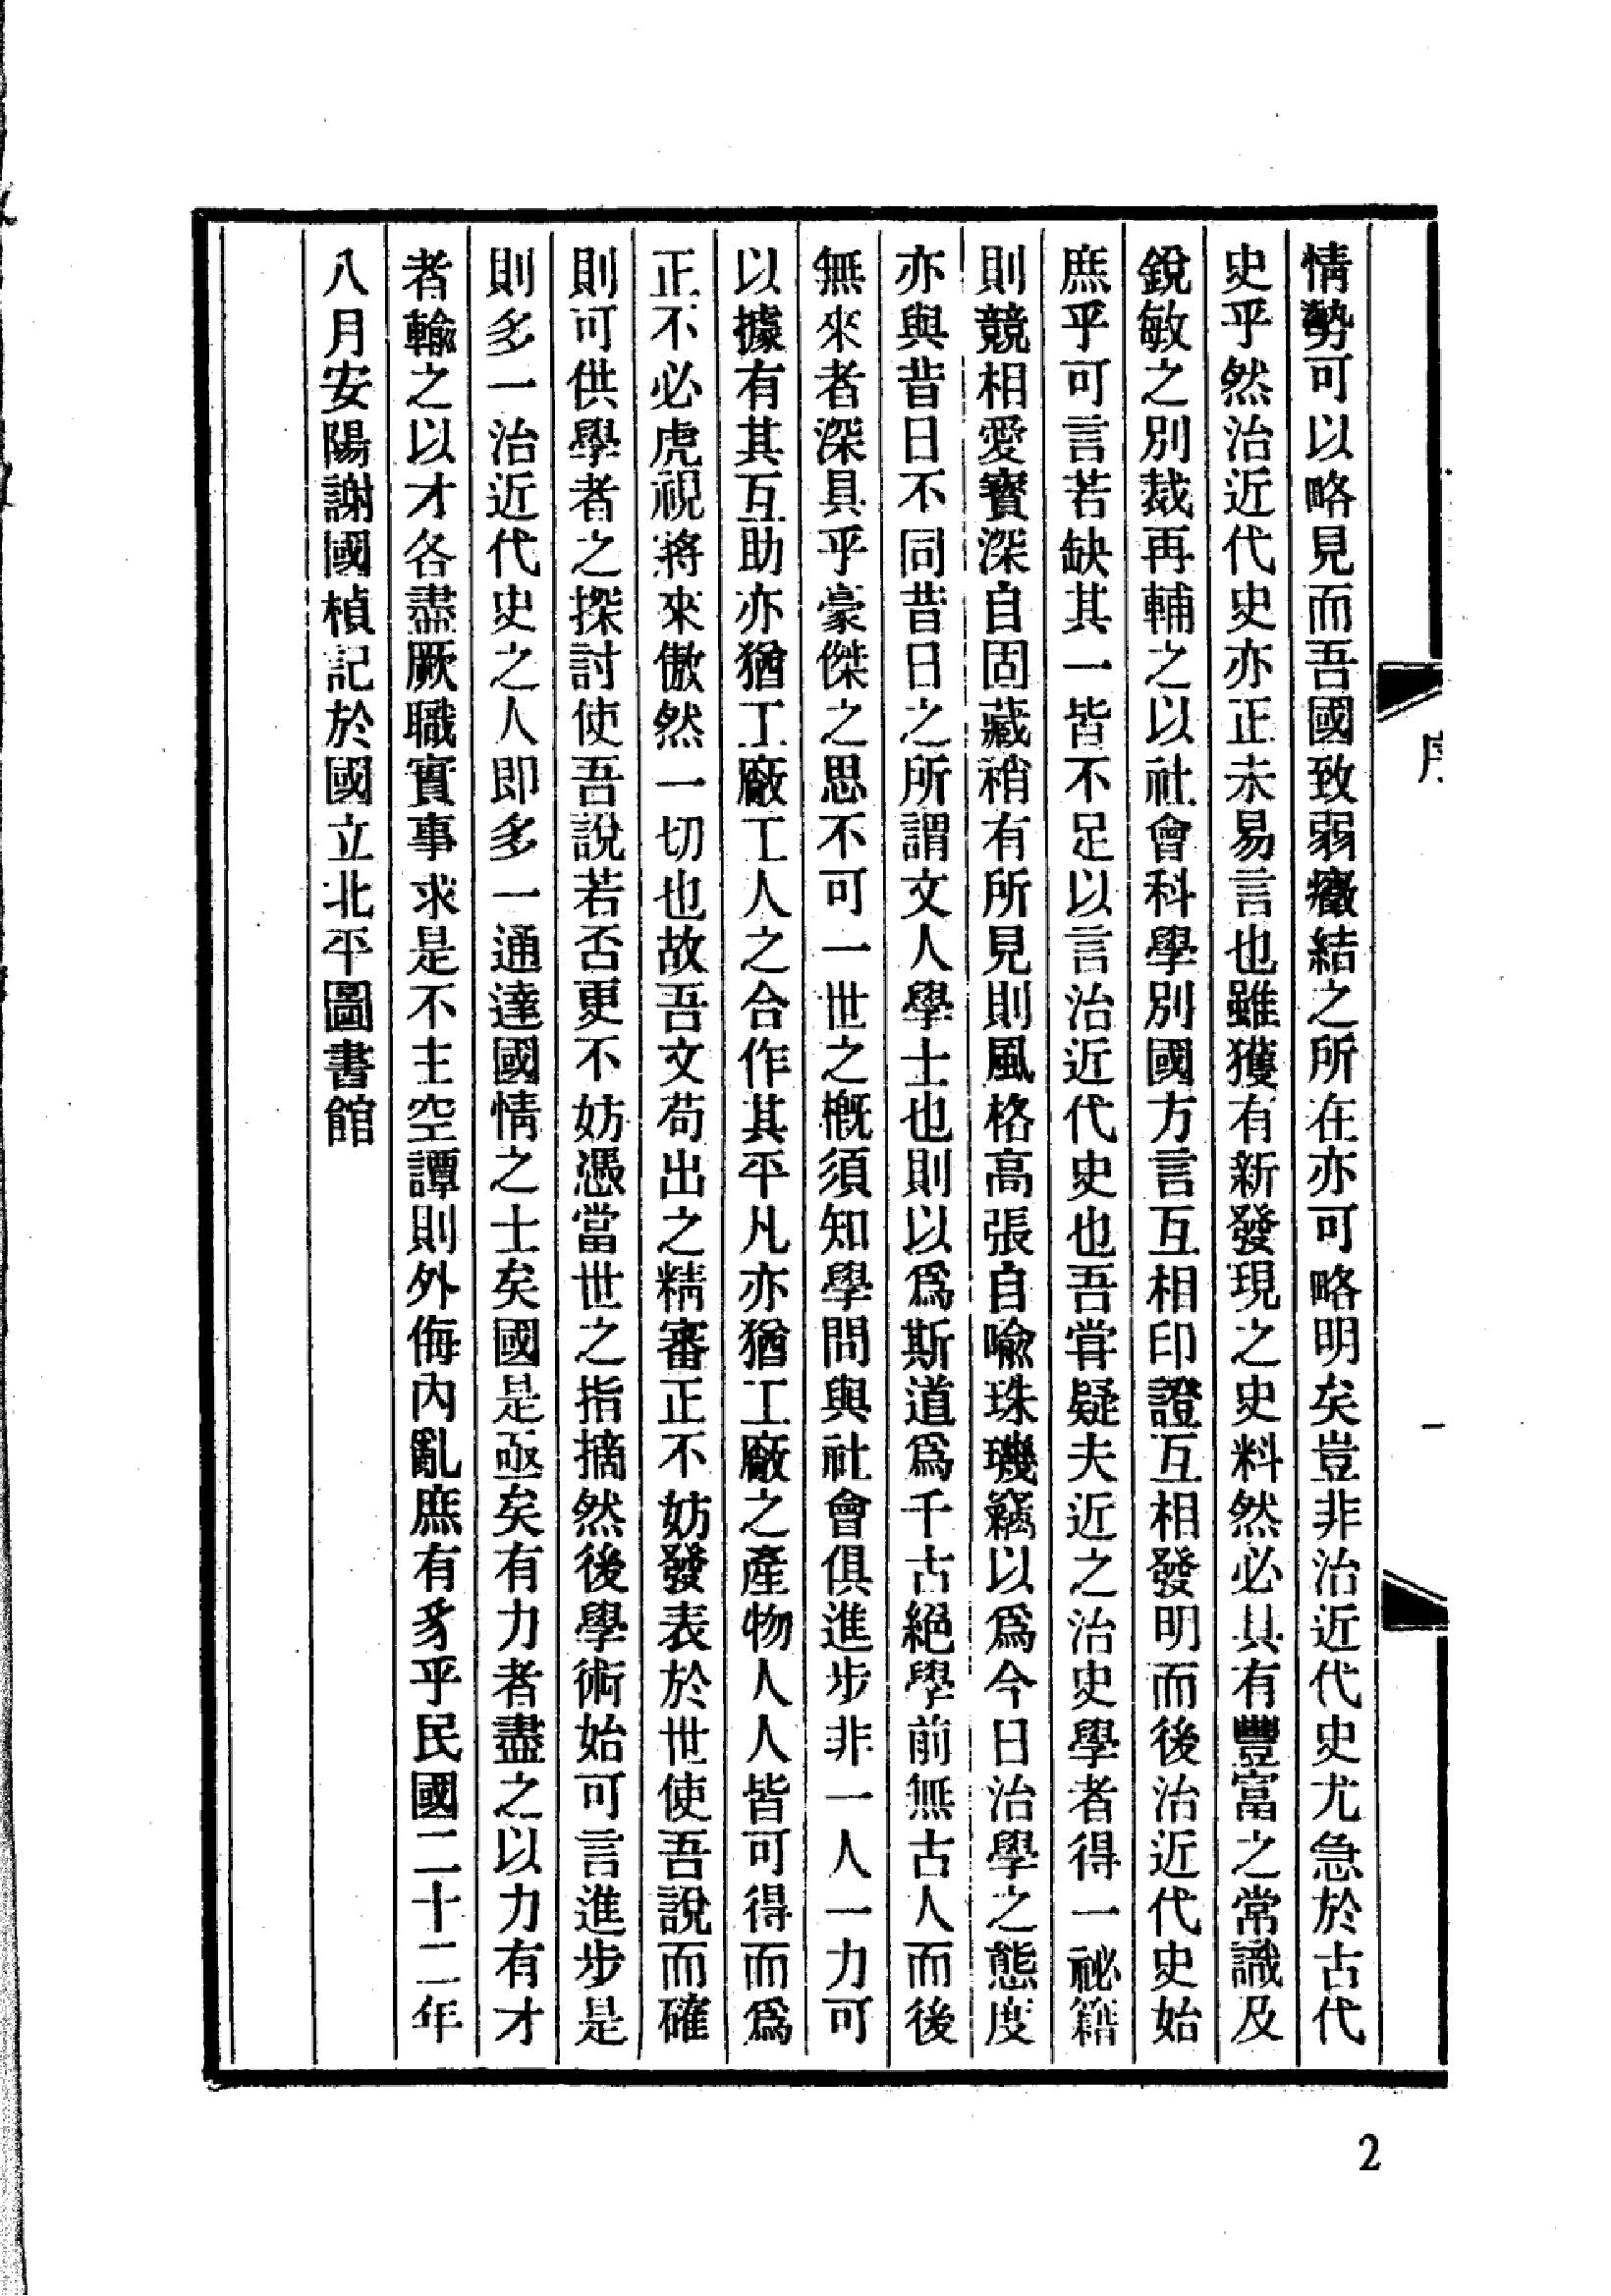 情勢可以略見而吾國致弱癥結之所在亦可略明矣豈非治近代史尤急於古代
史乎然治近代史亦正未易言也雖獲有新發現之史料然必具有豐富之常識及
銳敏之別裁再輔之以社會科學別國方言互相印證互相發明而後治近代史始
庶乎可言若缺其一皆不足以言治近代史也吾嘗疑夫近之治史學者得一祕籍
則競相愛寶深自固藏稍有所見則風格高張自喩珠璣竊以爲今日治學之態度
亦與昔日不同昔日之所謂文人學士也則以爲斯道爲千古絕學前無古人而後
無來者深具乎豪傑之思不可一世之槪須知學問與社會俱進步非一人一力可
以據有其互助亦猶工廠工人之合作其平凡亦猶工廠之產物人人皆可得而爲
正不必虎視將來傲然一切也故吾文苟出之精審正不妨發表於世使吾說而確
則可供學者之探討使吾說若否更不妨憑當世之指摘然後學術始可言進步是
則多一治近代史之人即多一通達國情之士矣國是亟矣有力者盡之以力有才
者輸之以才各盡厥職實事求是不主空譚則外侮內亂庶有豸乎民國二十二年
八月安陽謝國楨記於國立北平圖書館
序
一
2